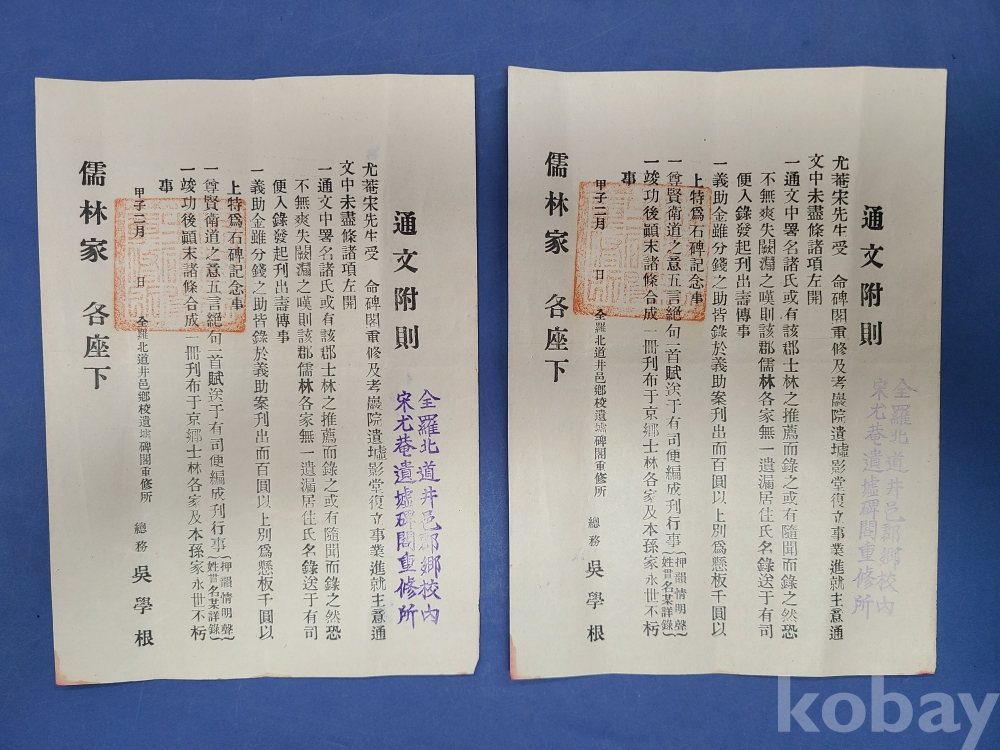 通文附則
尤菴宋先生受 命碑閣重修及考巖院遺墟影堂復立事業進就主意通
文中未盡條諸項左開
一通文中署名諸氏或有該郡士林之推薦而錄之或有隨聞而錄之然恐
不無爽失闕漏之嘆則該郡儒林各家無一遺漏居住氏名錄送于有司
便入錄發起刋出壽傳事
一義助金雖分錢之助皆錄於義助案刋出而百圓以上別爲懸板千圓以
上特爲石碑記念事
一尊賢衛道之意五言絶句一首賦送于有司便編成刋行事(押韻情明聲
姓貫名某詳錄)
一竣功後顚末諸條合成一冊刋布于京鄕士林各家及本孫家永世不朽
事
甲子二月 日 全羅北道井邑鄕校遺墟碑閣重修所 總務 吳學根
儒林家 各座下
全羅北道井邑郡鄕校內
宋尤菴遺墟碑閣重修所
通文附則
尤菴宋先生受 命碑閣重修及考巖院遺墟影堂復立事業進就主意通
文中未盡條諸項左開
一通文中署名諸氏或有該郡士林之推薦而錄之或有隨聞而錄之然恐
不無爽失闕漏之嘆則該郡儒林各家無一遺漏居住氏名錄送于有司
便入錄發起刋出壽傳事
一義助金雖分錢之助皆錄於義助案刋出而百圓以上別爲懸板千圓以
上特爲石碑記念事
一尊賢衛道之意五言絶句一首賦送于有司便編成刋行事(押韻情明聲
姓貫名某詳錄)
一竣功後顚末諸條合成一冊刋布于京鄕士林各家及本孫家永世不朽
事
甲子二月 日 全羅北道井邑鄕校遺墟碑閣重修所 總務 吳學根
儒林家 各座下
全羅北道井邑郡鄕校內
宋尤菴遺墟碑閣重修所
kobay